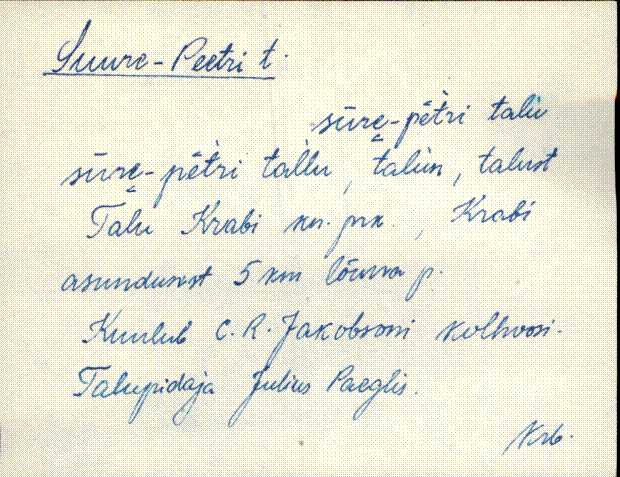 Suure-Peetri t.
sūre̬-pētri talu
sūre̬-pētri tallu, talun, talust
Talu Krabi kn. prk., Krabi
asundusest 5 km lõuna p.
Kuulub C. R. Jakobsoni kolhoosi.
Talupidaja Julius Paeglis.
Krb.